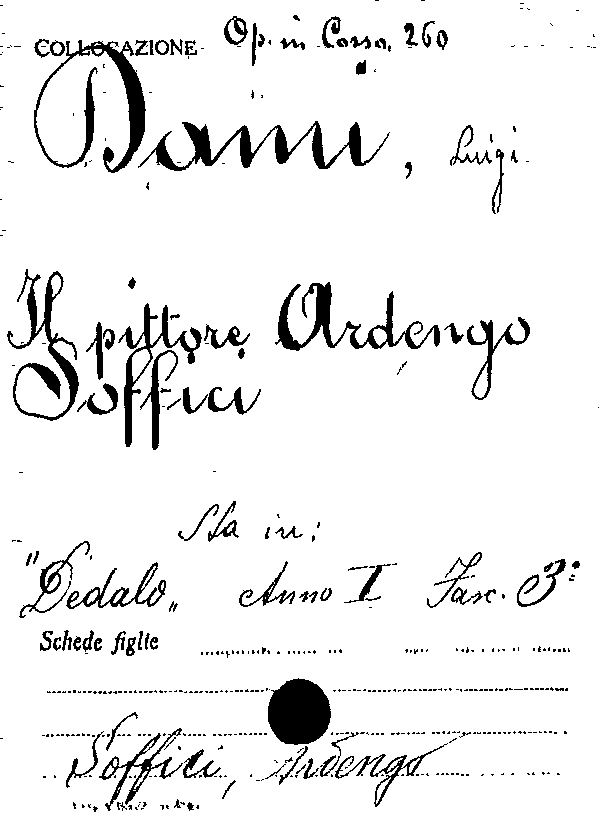 COLLOCAZIONE Op. in Corso. 260
Dami, Luigi
Il pittore Ardengo
Soffici
Sta in:
"Dedalo„ Anno I Fasc. 3°
Schede figlie
Soffici, Ardengo